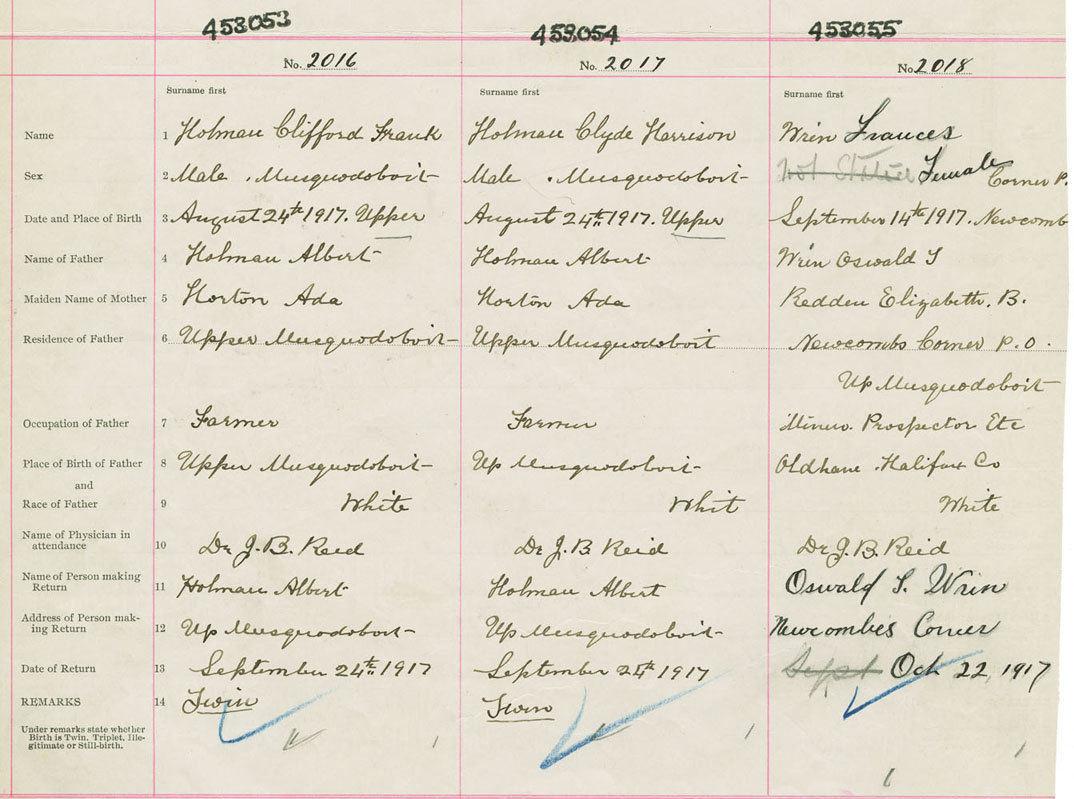 453053 453054 453055
No. 2016 No. 2017 No. 2018
Surname first Surname first Surname first
Name 1 Holman Clifford Frank Holman Clyde Harrison Wrin Frances
Sex 2 Male . Musquodoboit Male . Musquodoboit Not Stated Female Corner P.
Date and Place of Birth 3 August 24th 1917. Upper August 24th 1917. Upper September 14th 1917. Newcomb
Name of Father 4 Holman Albert Holman Albert Wrin Oswald S
Maiden Name of Mother 5 Horton Ada Horton Ada Redden Elizabeth. B.
Residence of Father 6 Upper Musquodoboit Upper Musquodoboit Newcombs Corner P.O.
Up Musquodoboit
Occupation of Father 7 Farmer Farmer Miner. Prospector Etc
Place of Birth of Father 8 Upper Musquodoboit Up Musquodoboit Oldham . Halifax Co
and
Race of Father 9 White Whit White
Name of Physician in
attendance 10 Dr J. B. Reid Dr J. B Reid Dr J. B. Reid
Name of Person making
Return 11 Holman Albert Holman Albert Oswald S. Wrin
Address of Person mak-
ing Return 12 Up Musquodoboit Up Musquodoboit Newcombes Corner
Date of Return 13 September 24th 1917 September 25th 1917 Sept Oct 22, 1917
REMARKS 14 Twin Twin
Under remarks state whether
Birth is Twin, Triplet, Ille-
gitimate or Still-birth.